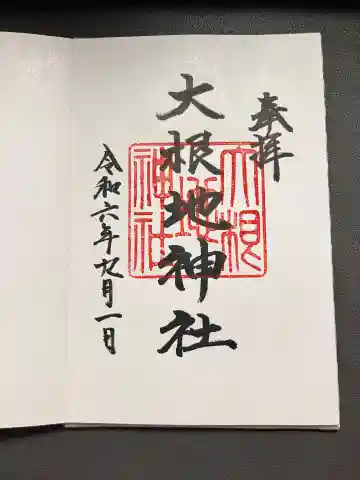 奉拝
大根地神社
大根地神社
令和六年九月一日